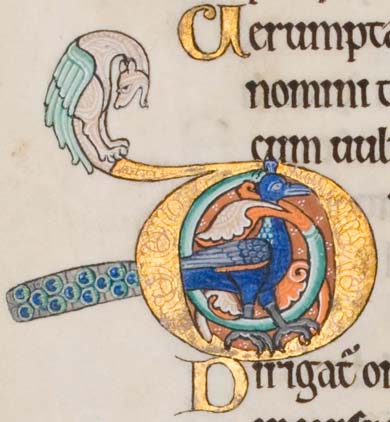 Uerumpta
nomini t
cum uul
D
Dirigat᷑ or